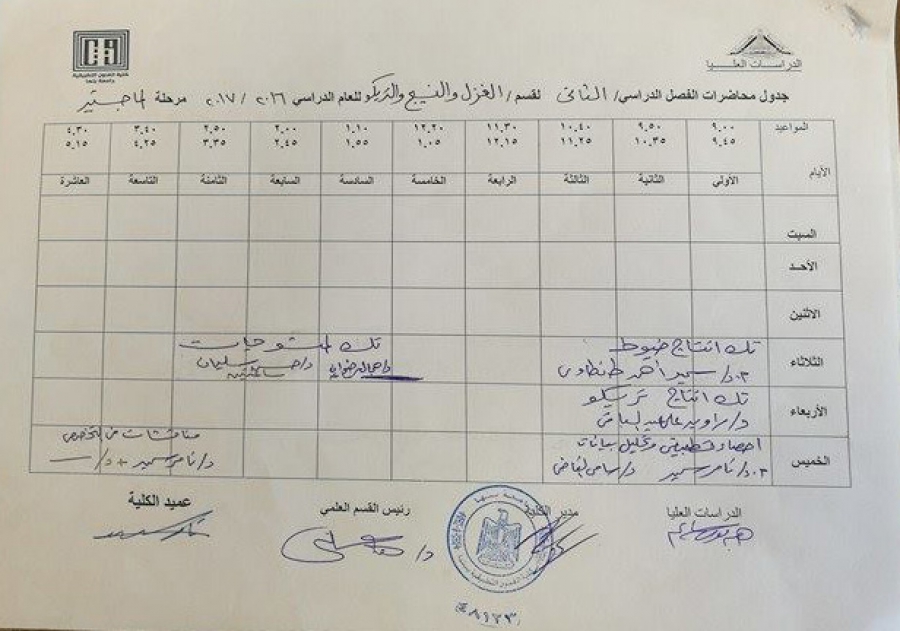 الدراسات العليا
كلية الفنون التطبيقية
جامعة بنها
جدول محاضرات الفصل الدراسي/ الثانى لقسم/ الغزل والنسيج والتريكو للعام الدراسي ٢٠١٦ / ٢٠١٧ مرحلة الماجستير
المواعيد ٩.٠٠ ٩.٥٠ ١٠.٤٠ ١١.٣٠ ١٢.٢٠ ١.١٠ ٢.٠٠ ٢.٥٠ ٣.٤٠ ٤.٣٠
٩.٤٥ ١٠.٣٥ ١١.٢٥ ١٢.١٥ ١.٠٥ ١.٥٥ ٢.٤٥ ٣.٣٥ ٤.٢٥ ٥.١٥
الأيام الأولي الثانية الثالثة الرابعة الخامسة السادسة السابعة الثامنة التاسعة العاشرة
السبت
الأحد
الاثنين
الثلاثاء
تك انتاج خيوط
د/ سمير احمد طنطاوى
تك
د/ سليمان
الأربعاء
تك انتاج تريكو
د/ راويه
الخميس
احصاء تطبيقى وتحليل بيانات
د/ تامر سمير د/ سامى
مناقشات من
د/ تامر سمير + د/
الدراسات العليا
مدير الكلية
رئيس القسم العلمي
عميد الكلية
د/